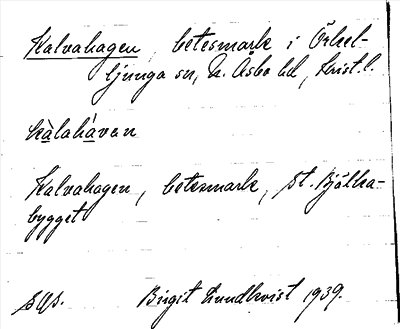 Kalvahagen, betesmark i Örkel-
ljunga sn, N. Åsbo hd, Krist.l.
kàlahávan
Kalvahagen, betesmark, St. Bjälka-
bygget
Birgit Lundkvist 1939.